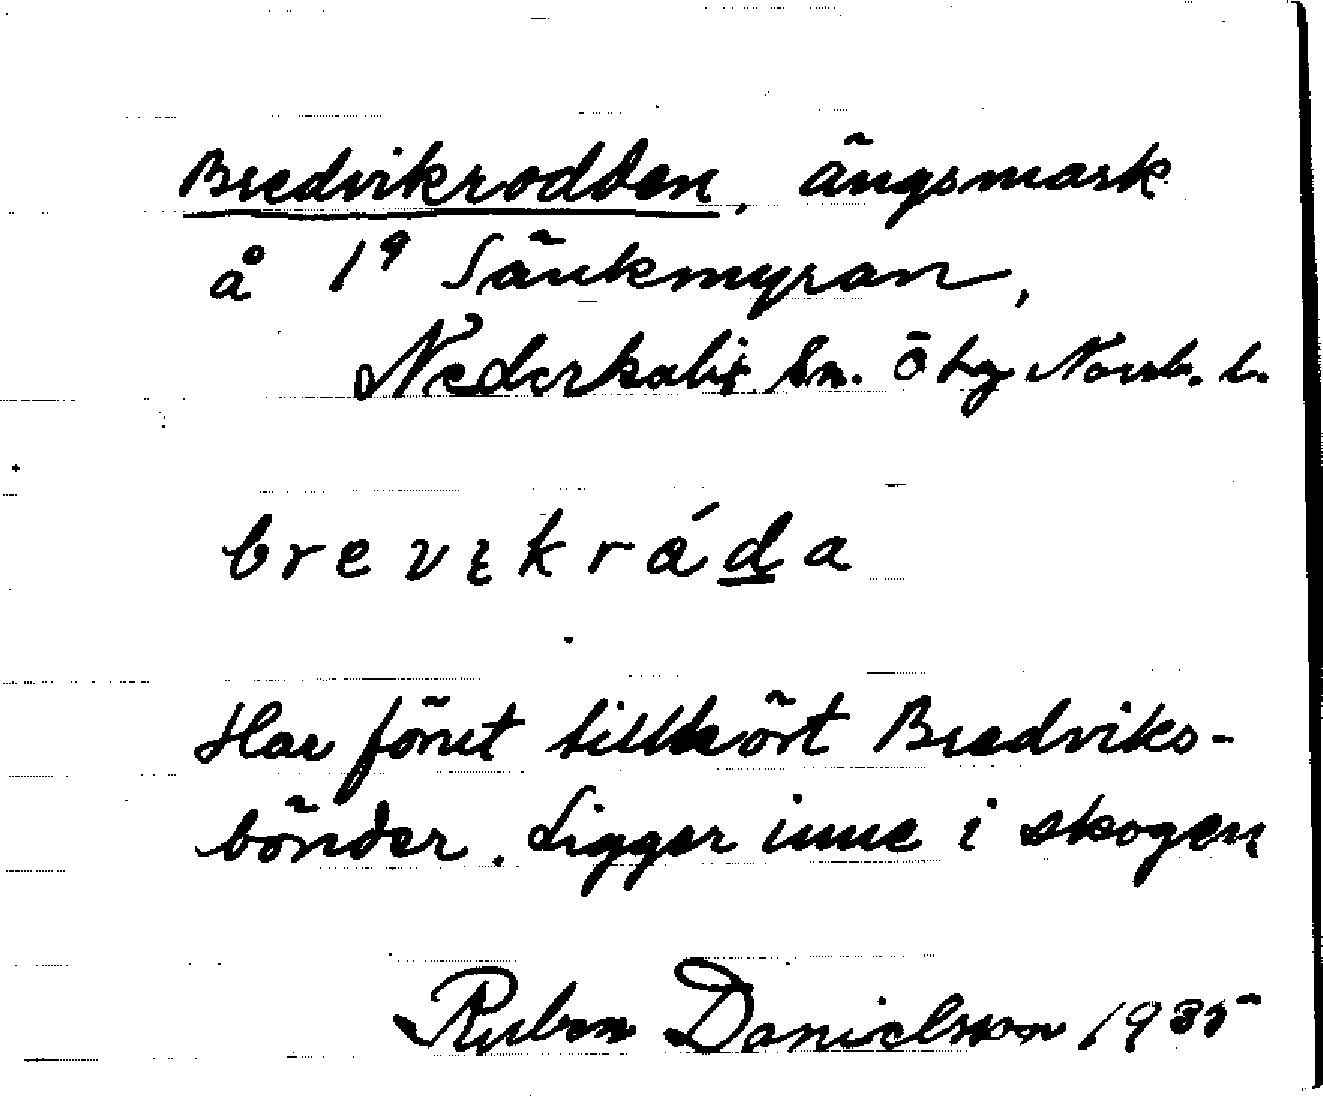 Bredvikrodden, ängsmark
å 1⁹ Sänkmyran,
Nederkalix sn. Ö bg Norrb. l.
brevɩkráda
Har förut tillhört Bredviks-
bönder. Ligger inne i skogen
Ruben Danielsson 1935